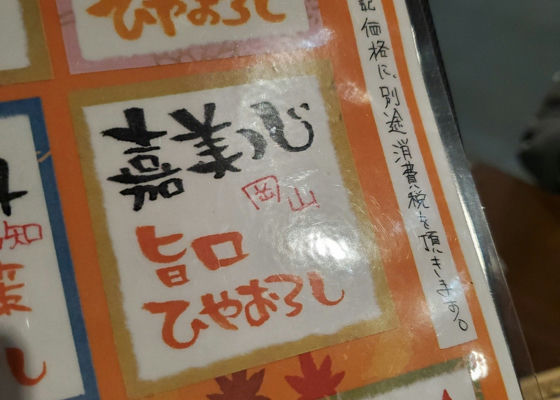 ひやおろし
嘉美心
岡山
旨口
ひやおろし
記価格に、別途消費税を頂きます。
知
し